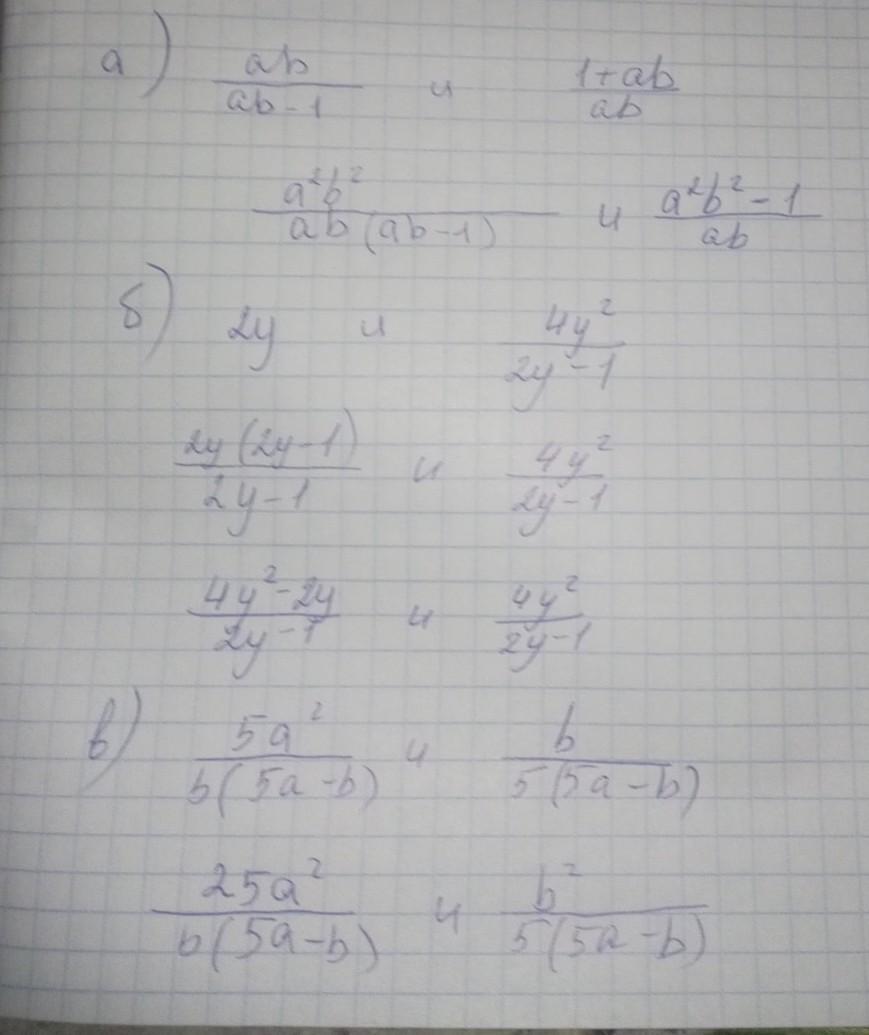 а) ab/(ab-1) и (1+ab)/ab
a²b²/(ab(ab-1)) и (a²b²-1)/ab
б) 2y и 4y²/(2y-1)
2y(2y-1)/(2y-1) и 4y²/(2y-1)
(4y²-2y)/(2y-1) и 4y²/(2y-1)
в) 5a²/(b(5a-b)) и b/(5(5a-b))
25a²/(b(5a-b)) и b²/(5(5a-b))